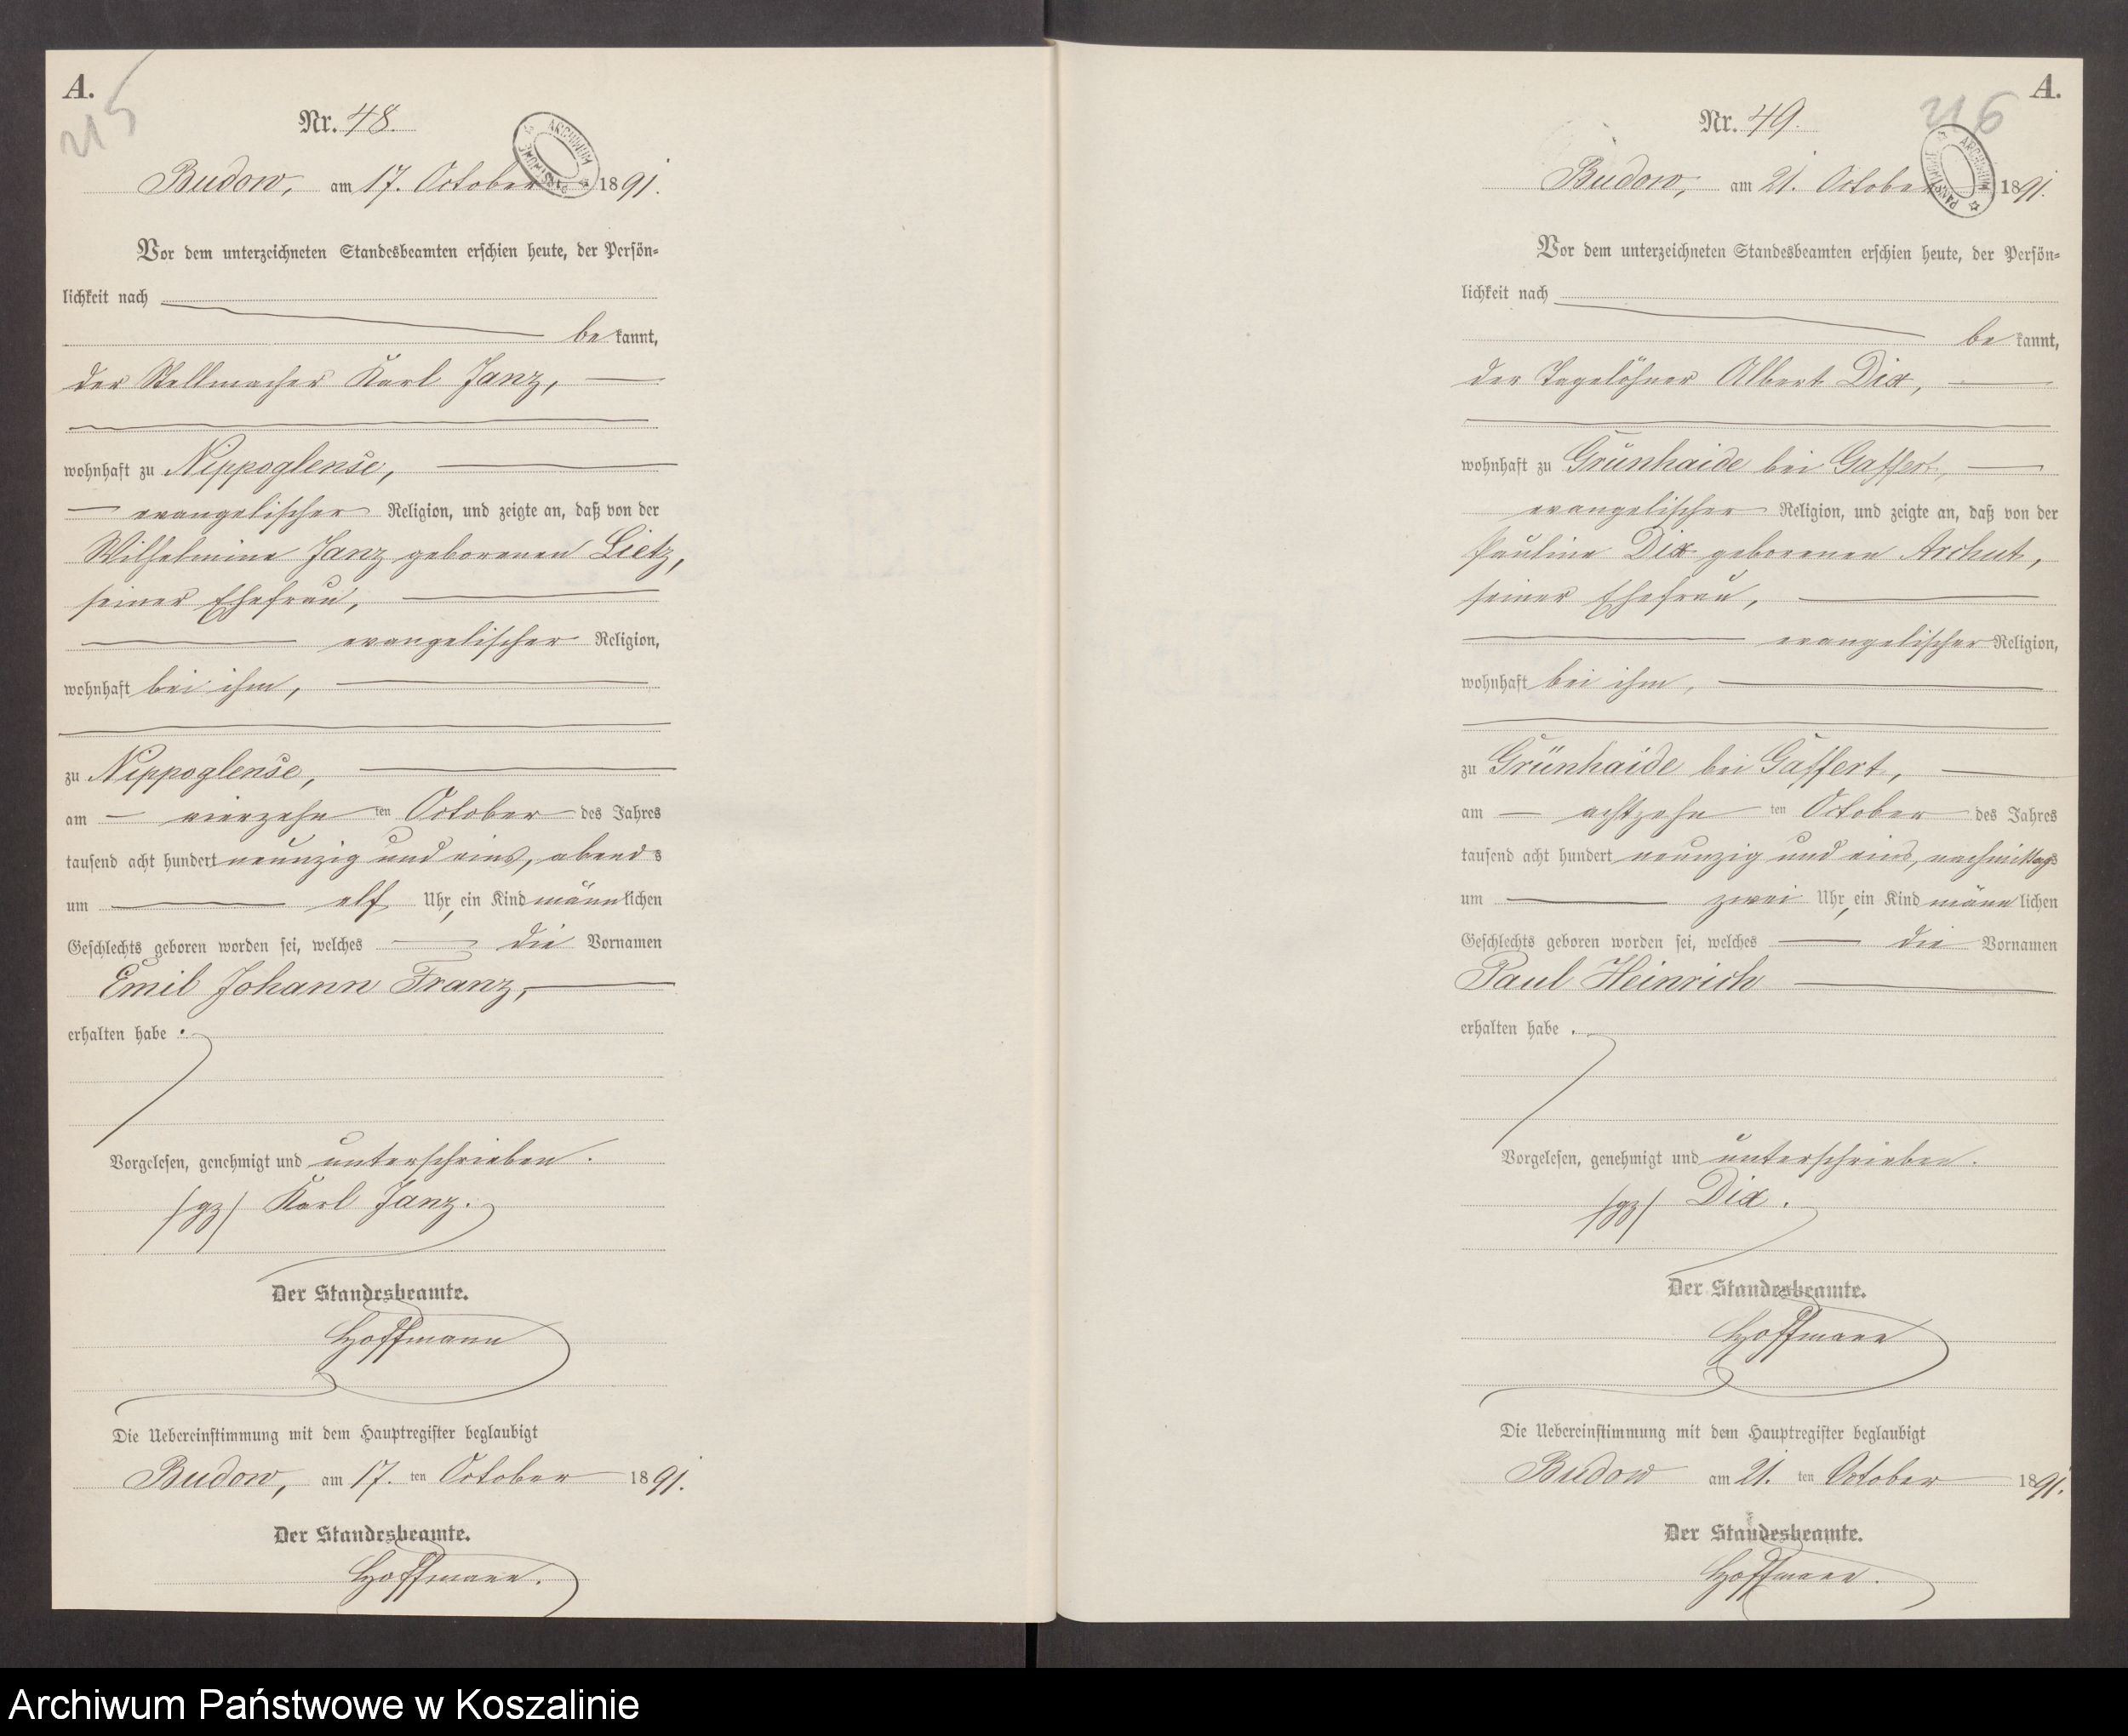 A.
215
Nr. 48.
ARCHIWUM PAŃSTWOWE
Budow, am 17. October 1891.
Vor dem unterzeichneten Standesbeamten erschien heute, der Persön=
lichkeit nach
bekannt,
der Stellmacher Karl Janz,
wohnhaft zu Nippoglense,
evangelischer Religion, und zeigte an, daß von der
Wilhelmine Janz geborenen Lietz,
seiner Ehefrau,
evangelischer Religion,
wohnhaft bei ihm,
zu Nippoglense,
am vierzehn ten October des Jahres
tausend acht hundert neunzig und eins, abends
um elf Uhr, ein Kind männlichen
Geschlechts geboren worden sei, welches die Vornamen
Emil Johann Franz,
erhalten habe.
Vorgelesen, genehmigt und unterschrieben.
/gz/ Karl Janz.
Der Standesbeamte.
Hoffmann
Die Uebereinstimmung mit dem Hauptregister beglaubigt
Budow, am 17. ten October 1891.
Der Standesbeamte.
Hoffmann.
A.
216
Nr. 49.
ARCHIWUM PAŃSTWOWE
Budow, am 21. October 1891.
Vor dem unterzeichneten Standesbeamten erschien heute, der Persön=
lichkeit nach
bekannt,
der Tagelöhner Albert Dix,
wohnhaft zu Grünhaide bei Gaffert,
evangelischer Religion, und zeigte an, daß von der
Pauline Dix geborenen Archut,
seiner Ehefrau,
evangelischer Religion,
wohnhaft bei ihm,
zu Grünhaide bei Gaffert,
am achtzehn ten October des Jahres
tausend acht hundert neunzig und eins, nachmittags
um zwei Uhr, ein Kind männlichen
Geschlechts geboren worden sei, welches die Vornamen
Paul Heinrich
erhalten habe.
Vorgelesen, genehmigt und unterschrieben.
/gz/ Dix.
Der Standesbeamte.
Hoffmann
Die Uebereinstimmung mit dem Hauptregister beglaubigt
Budow am 21. ten October 1891.
Der Standesbeamte.
Hoffmann.
Archiwum Państwowe w Koszalinie